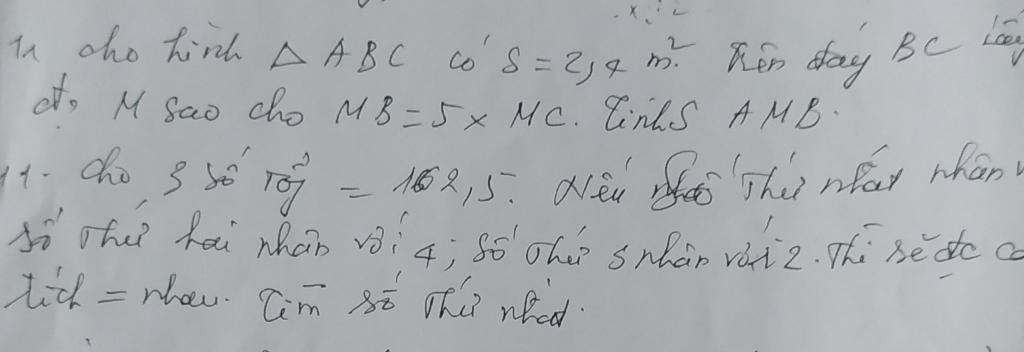 cho hình Δ ABC có S = 2,4 m². Trên đáy BC lấy
đ, M sao cho MB = 5 x MC. Tính S AMB.
11. Cho 3 số Tổng = 162,5. Nếu số Thứ nhất nhân
số Thứ hai nhân với 4; số Thứ 3 nhân với 2. Thì sẽ đc
tích = nhau. Tìm số Thứ nhất.